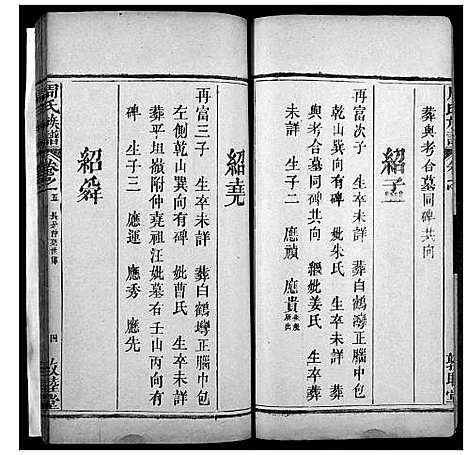 葬與考合墓同碑共向
紹孟
再富次子 生卒未詳 葬白鶴灣正腦中包
乾山巽向有碑 妣朱氏 生卒未詳 葬
與考合墓同碑共向 妣姜氏 生卒葬
未詳 生子二 應禎 應貴
敦睦堂
紹堯
再富三子 生卒未詳 葬白鶴灣正腦中包
左側乾山巽向有碑 妣曹氏 生卒未詳
葬平坦嶺附仲堯祖汪妣墓右壬山丙向有
碑 生子三 應運 應秀 應先
紹舜
周氏族譜 卷之一
五
四
敦睦堂